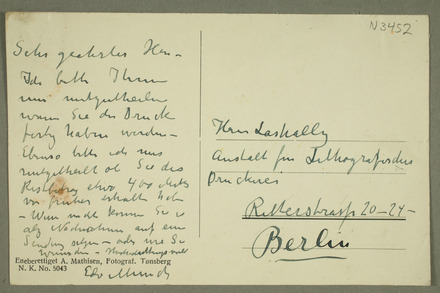 N3452
Sehr geehrter Herr –
Ich bitte Ihnen
mir mitzutheilen
wann Sie den Druck
fertig haben werden –
Ebenso bitte ich mir
mitgetheilt ob Sie das
etwa 400 Mark
vor früher erhalten
– Wenn nicht können Sie
als Nachnahme auf eine
Sendung setzen – oder wie Sie
wünschen –
Edv Munch
Eneberettiget A. Mathisen, Fotograf. Tonsberg
N. K. No. 5043
Herrn Laskally
Anstalt für Lithografisches
Druckerei
Ritterstrasse 20–24 –
Berlin